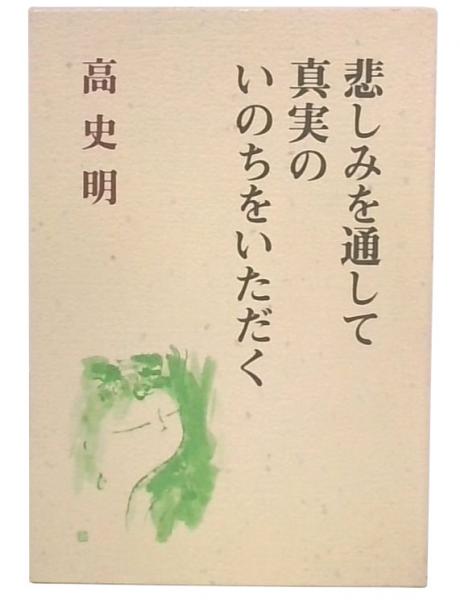 悲しみを通して
真実の
いのちをいただく
高史明